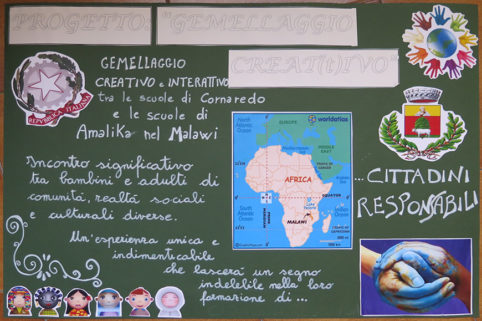 PROGETTO: "GEMELLAGGIO
CREAT(t)IVO"
GEMELLAGGIO
CREATIVO e INTERATTIVO
tra le scuole di Cornaredo
e le scuole di
Amalika nel Malawi
REPVBBLICA ITALIANA
Incontro significativo
tra bambini e adulti di
comunità, realtà sociali
e culturali diverse.
Un'esperienza unica e
indimenticabile
che lascerà un segno
indelebile nella loro
formazione di ...
North
Atlantic
Ocean
EUROPE
worldatlas
Mediterranean
Sea
MIDDLE
EAST
TROPIC OF
CANCER
AFRICA
EQUATOR
South
Atlantic
Ocean
MALAWI
Indian
Ocean
PRIME
MERIDIAN
... CITTADINI
RESPONSABILI